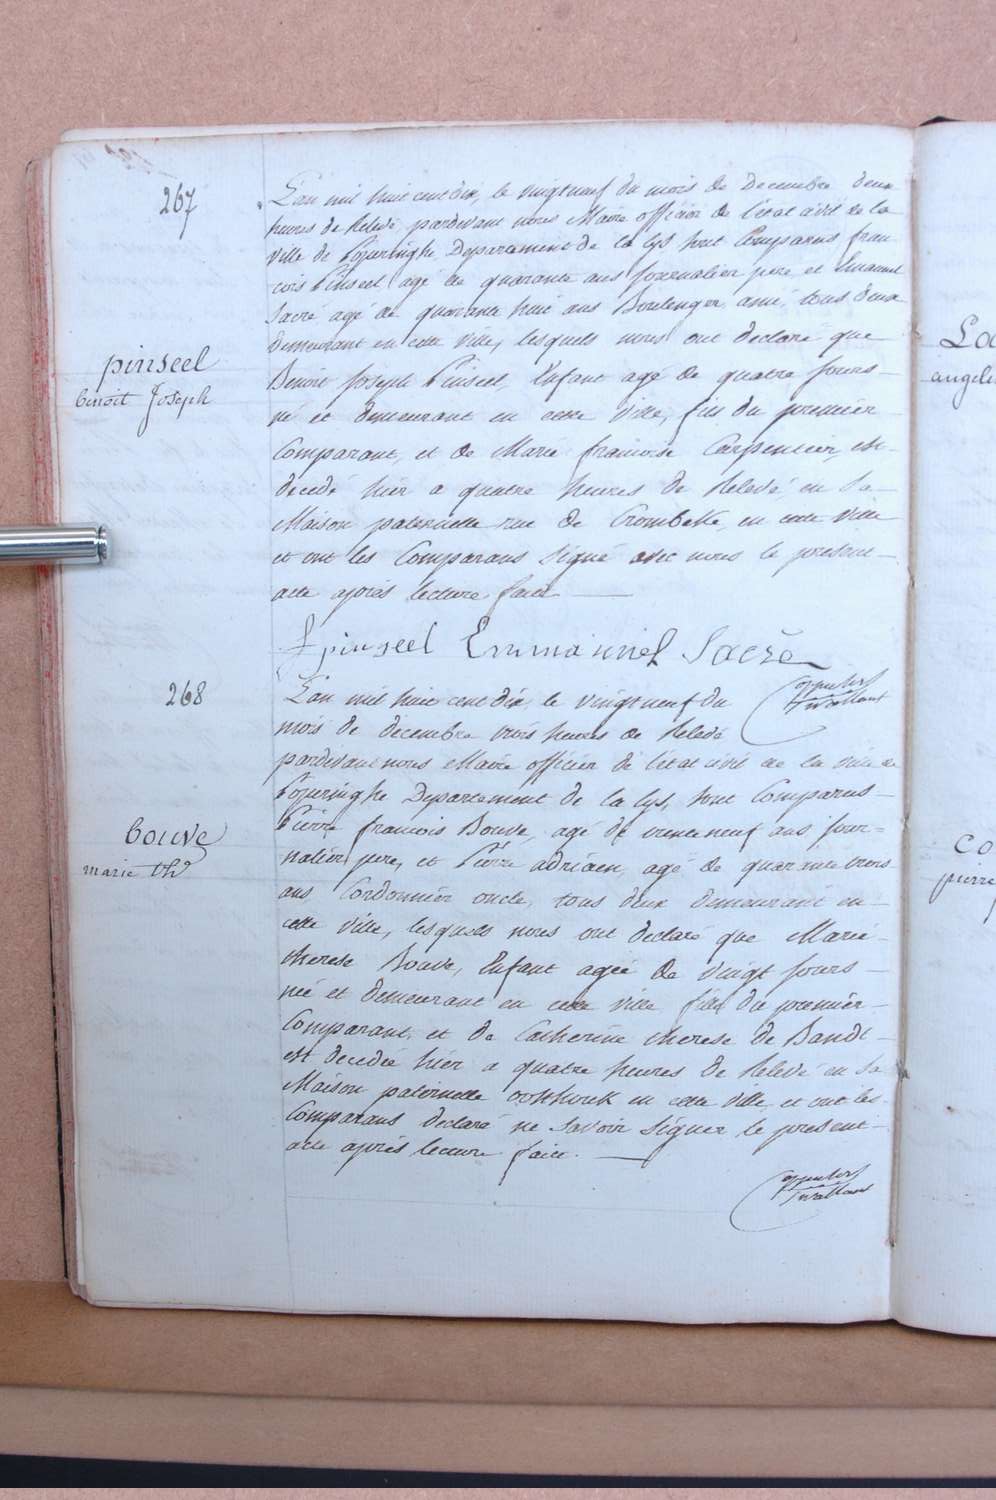 267
L'an mil huit cent dix, le vingt neuf du mois de Decembre deux
heures de Relevé, pardevant nous Maire officier de l'état civil de la
ville de Poperinghe Departement de la Lys sont Comparus fran-
cois Pinseel agé de quarante ans Journalier pere et Emanuel
Sacré agé de quarante huit ans Boulenger ami, tous deux
demeurant en cette ville, lesquels nous ont declaré que
pinseel
benoit Joseph
Benoit Joseph Pinseel, Enfant agé de quatre Jours
né et demeurant en cette Ville, fils du premier
Comparant, et de Marie francoise Carpentier, est
decedé hier a quatre heures de Relevé, en Sa
Maison paternelle rue de Crombeke, en cette ville
et ont les Comparans Signé avec nous le present
acte après lecture faite
f pinseel Emmanuel Sacré
268
L'an mil huit cent dix, le vingt neuf du
mois de decembre trois heures de Relevé
pardevant nous Maire officier de l'etat civil de la ville de
Poperinghe Departement de la Lys, sont Comparus
Pierre francois Bouve, agé de trente neuf ans Jour=
nalier pere, et Pierre adriaen, agé de quarante trois
bouve
marie th.
ans Cordonnier oncle, tous deux demeurant en
cette ville, lesquels nous ont declaré que Marie
therese Bouve, Enfant agée de Vingt Jours
née et demeurant en cette ville fille du premier
Comparant, et de Catherine therese de Bandt
est decedée hier a quatre heures de Relevé en Sa
Maison paternelle en cette ville, et ont les
Comparans declaré ne Savoir Signer le present
acte après lecture faite.